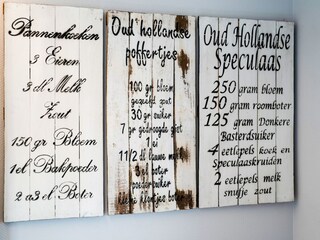 Pannenkoeken
3 Eieren
3 dl Melk
Zout
150 gr Bloem
1 el Bakpoeder
2 a 3 el Boter
Oud hollandse
poffertjes
100 gr bloem
gezeefd zout
30 gr suiker
7 gr gedroogde gist
1 ei
11/2 dl lauwe melk
3 el boter
poedersuiker
kleine klontjes boter
Oud Hollandse
Speculaas
250 gram bloem
150 gram roomboter
125 gram Donkere
Basterdsuiker
4 eetlepels koek en
Speculaaskruiden
2 eetlepels melk
snufje zout